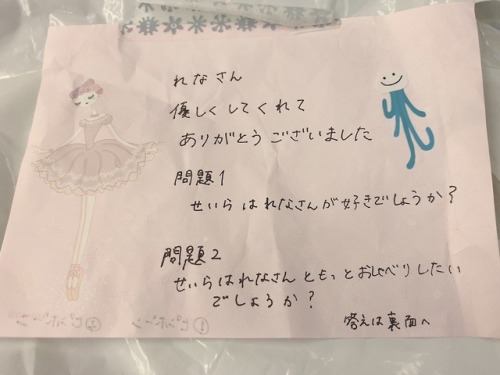 れなさん
優しくしてくれて
ありがとうございました
問題1
せいらはれなさんが好きでしょうか?
問題2
せいらはれなさんともっとおしゃべりしたい
でしょうか?
答えは裏面へ
①ピンポーン
②ピンポーン